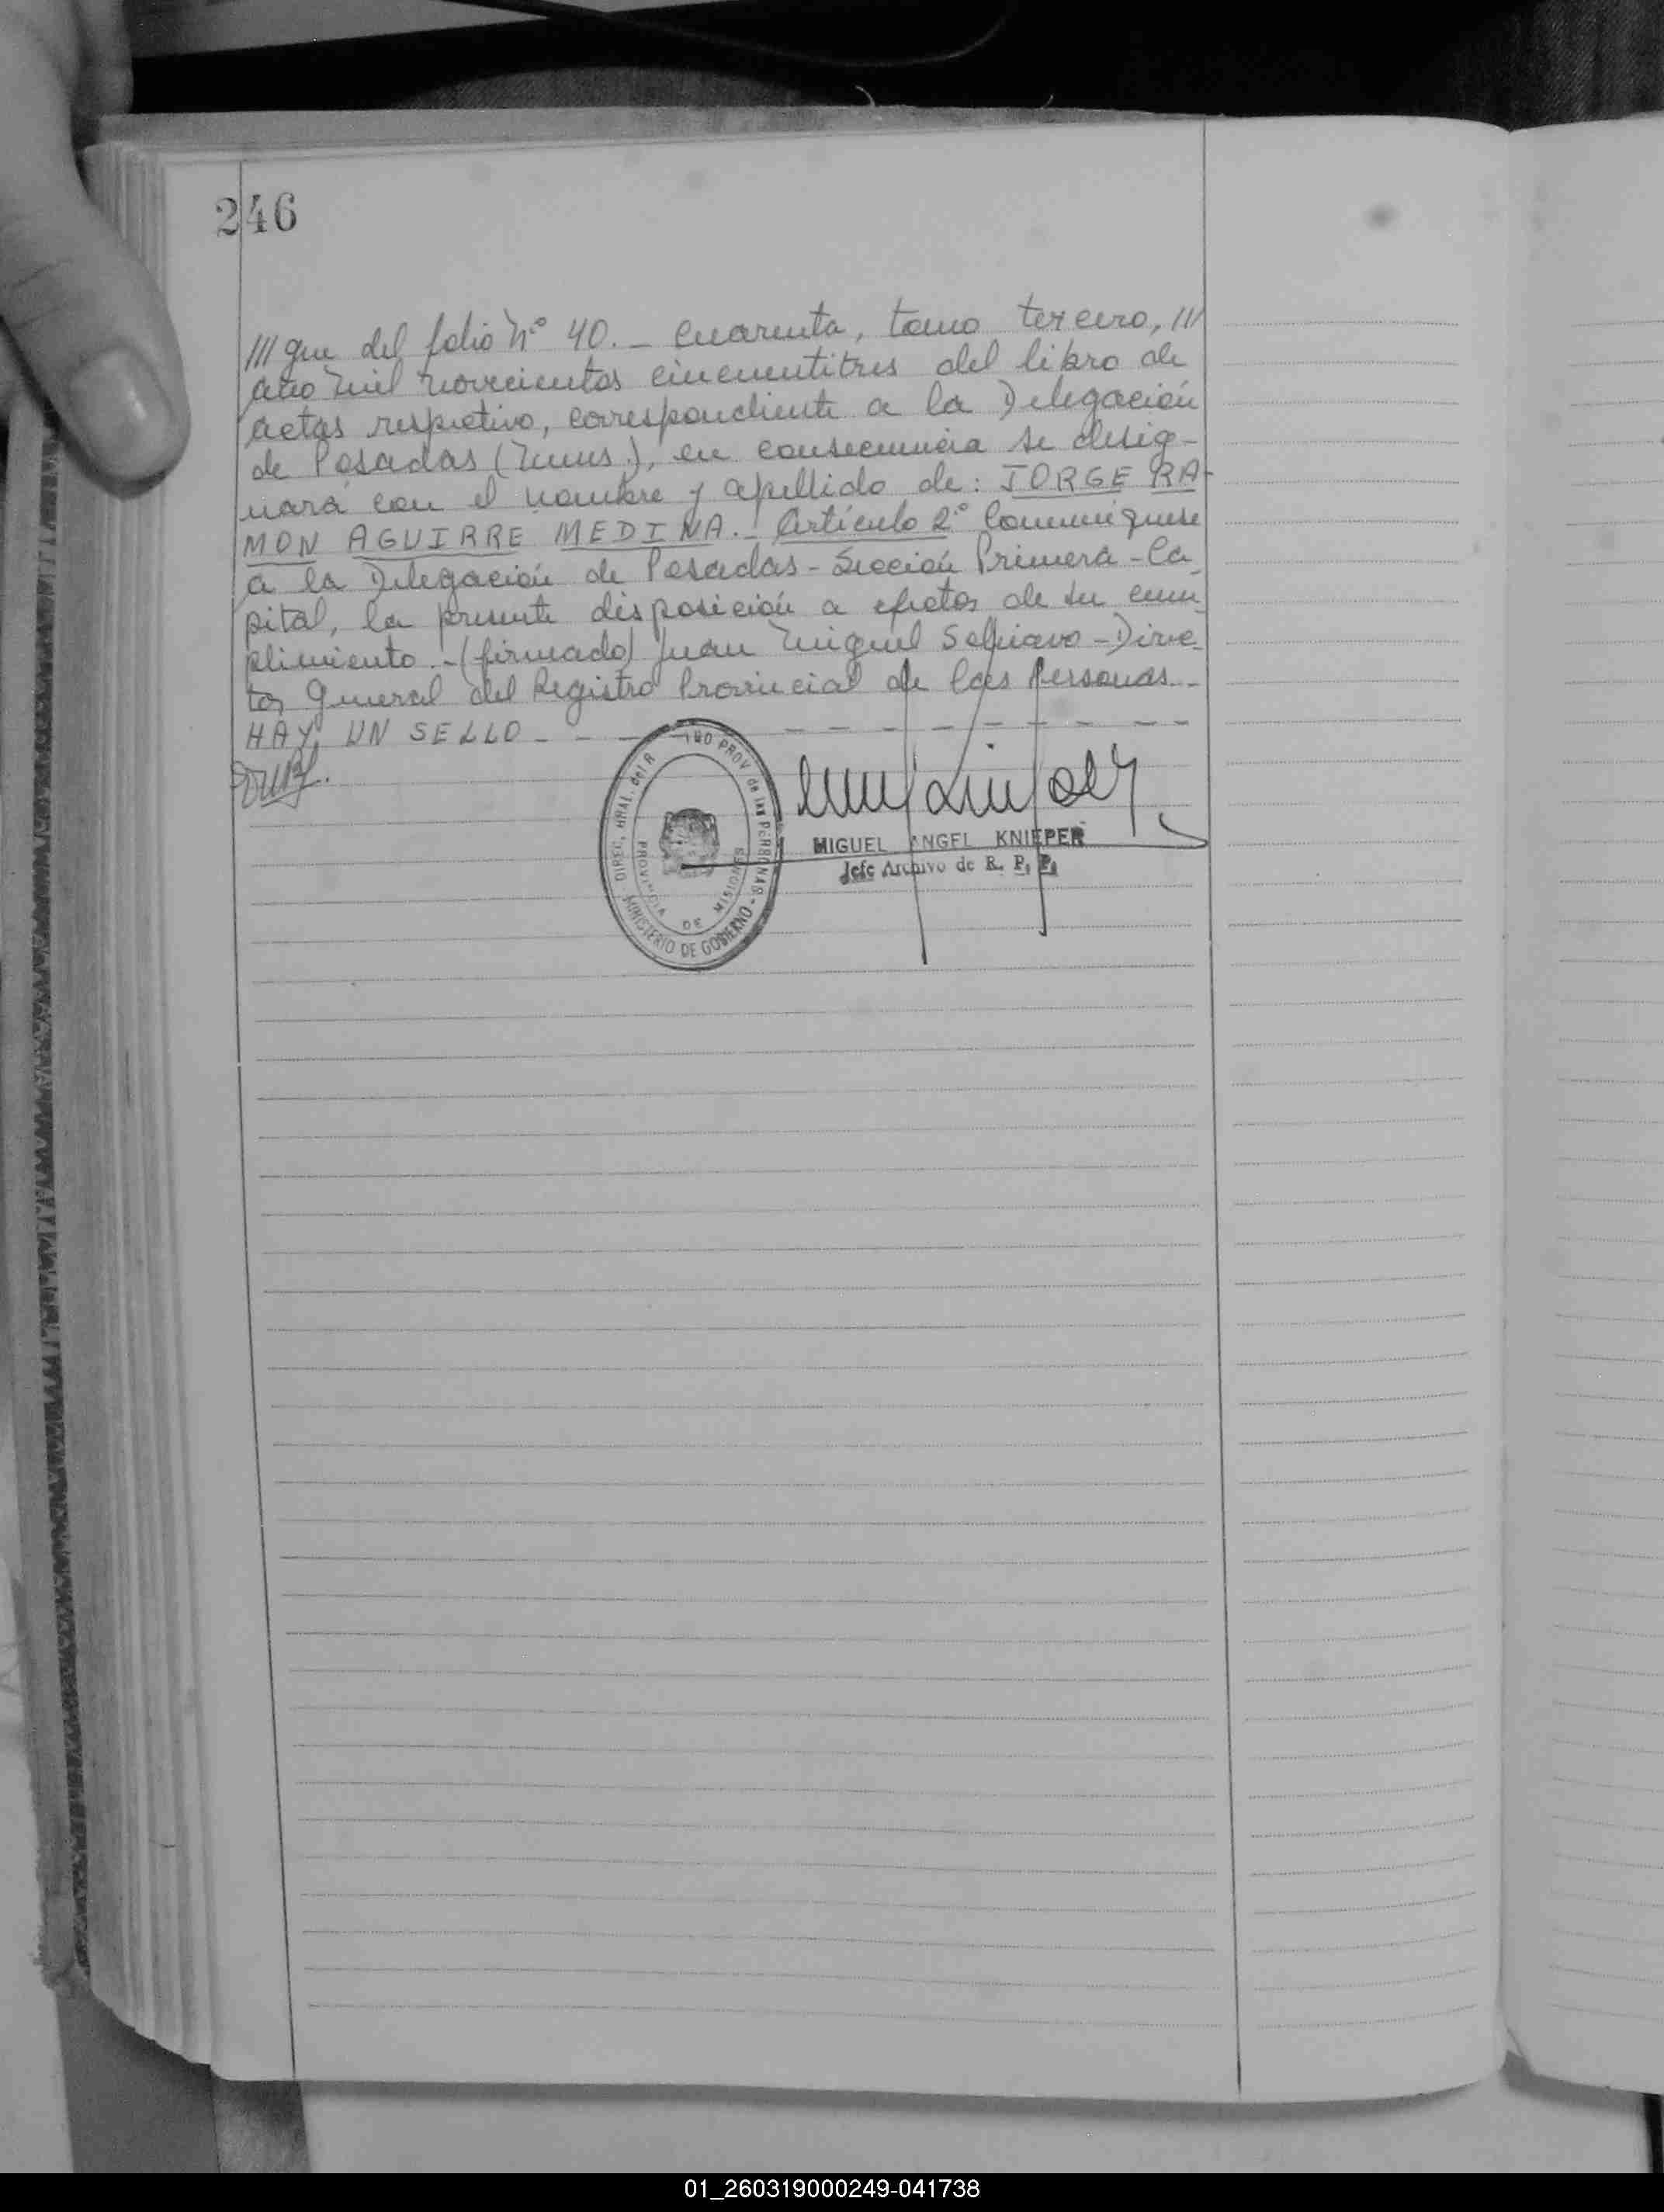 246
/// que del folio Nº 40.- Cuarenta, tomo tercero, ///
año mil novecientos cincuentitres del libro de
actas respetivo, correspondiente a la Delegación
de Posadas (Mnes.), en consecuencia se desig-
nará con el nombre y apellido de: JORGE RA-
MON AGUIRRE MEDINA.- Artículo 2º Comuniquese
a la Delegación de Posadas - Sección Primera - Ca-
pital, la presente disposición a efectos de su cum-
plimiento.- (firmado) Juan Miguel - Direc-
tor General del Registro Provincial de las Personas.-
HAY UN SELLO - - - - - - - - -
DIREC. GRAL. del R TRO PROV. de las PERSONAS -
MINISTERIO DE GOBIERNO -
PROVINCIA DE MISIONES
MIGUEL ANGEL KNIEPER
Jefe Archivo de R. P. P.
01_260319000249-041738